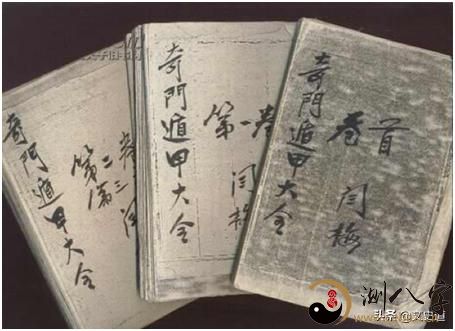 奇門遁甲大全
第二
第三
卷
闫
奇門遁甲大全
第一卷
闫梅
奇門遁甲大全
卷首
闫梅
測八字
头条 @文史道